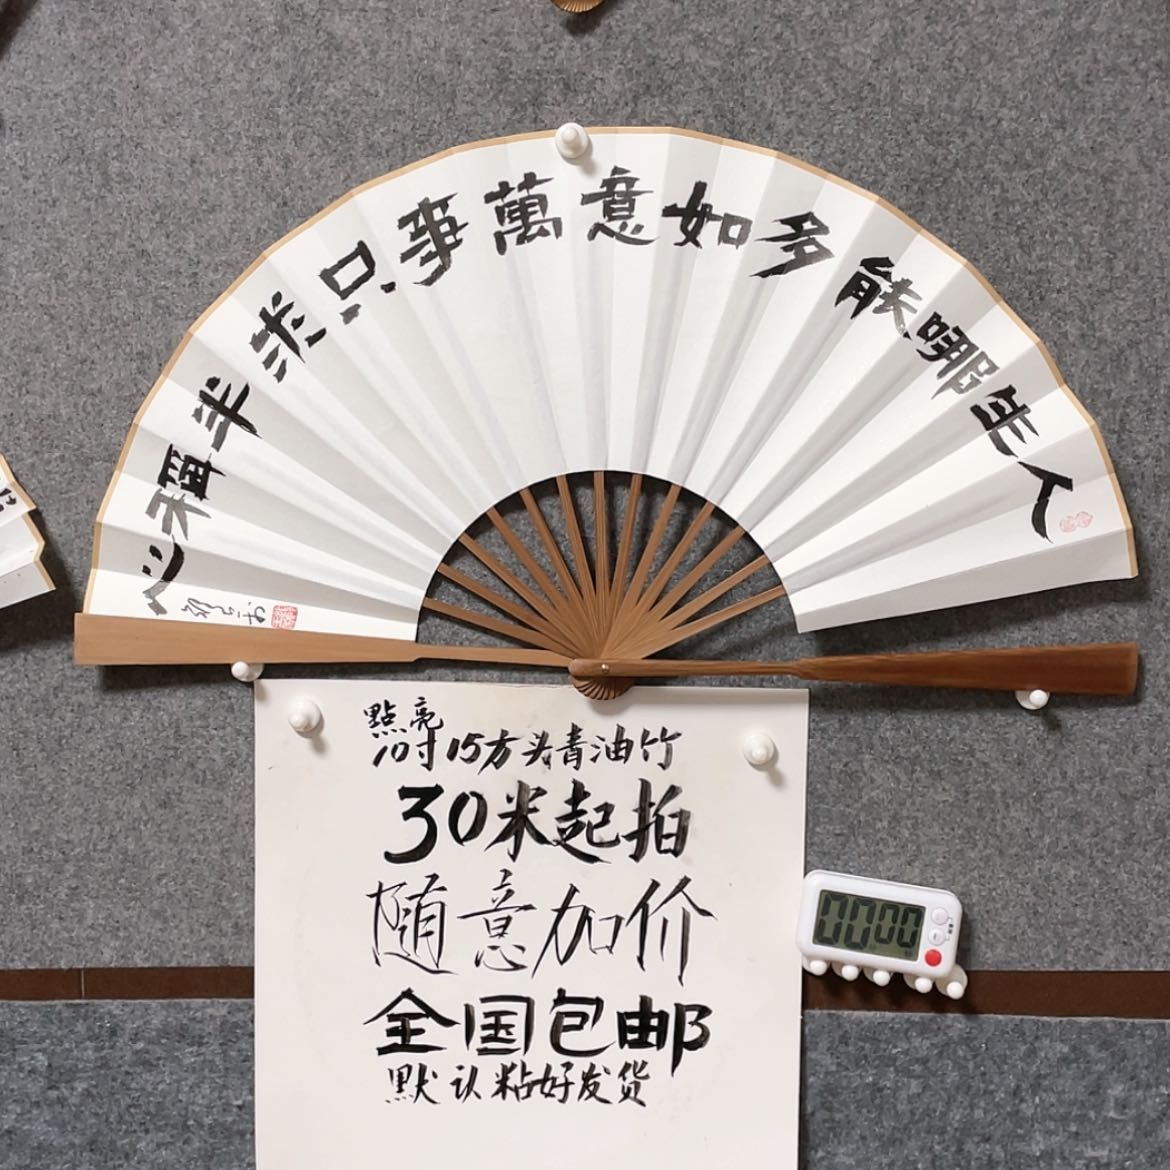 人生哪能多如意萬事只求半稱心
點亮
10寸15方头青油竹
30米起拍
随意加价
全国包邮
默认粘好发货
00:00